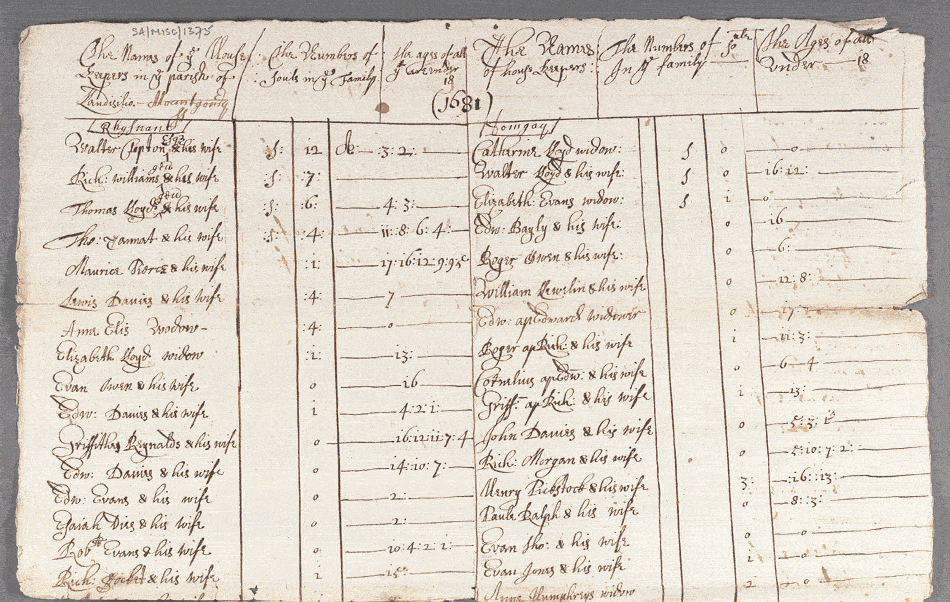 SA/MISC/1375
The Names of ye House
keepers in ye parish of
Landisilio - Mountgomry
The Numbers of
souls in ye family
The ages of all
ye Children under
18
The Names
of house keepers:
The Numbers of soules
In ye family
The Ages of all
Under 18
(1681)
Rhysnant
Walter Clopton Esqr & his wife :1: 12 &: 3: 2:
Rich: Williams gen & his wife :1: :7:
Thomas Lloyd gen & his wife :1: :6: 4: 3:
Tho: Tannat & his wife :1: :4: 11: 8: 6: 4:
Maurice Pierce & his wife :1: 17: 16: 12: 9: 9
Lewis Davies & his wife :4: 7
Anne Elis Widow - :4: o
Elizabeth Lloyd widow :1: 13:
Evan Owen & his wife o 16
Edw: Davies & his wife i 4: 2: 1:
Griffith Reynalds & his wife o 16: 12: 11: 7: 4
Edw: Davies & his wife o 14: 10: 7:
Edw: Evans & his wife o 2:
Esaiah Dies & his wife o 2:
Robt Evans & his wife o 10: 4: 2: 1:
Rich: & his wife i
Homgay
Catharine Lloyd widow: 1 o o
Walter Lloyd & his wife: 1 o 16: 12:
Elizabeth Evans widow: 1 i o
Edw: Bayly & his wife o 16
Roger Owen & his wife: o 6:
William Lewelin & his wife o 12: 8:
Edw: ap Edward widower o 17
Roger ap Rich: & his wife i 11: 3:
Cornelius ap Edw: & his wife o 6 - 4
Griff: ap Rich: & his wife i 13:
John Davies & his wife o 5: 3:
Rich: Morgan & his wife o 10: 7: 2:
Henry Pickstock & his wife 3: 16: 13:
Paule Ralph & his wife o 8: 3:
Evan Tho: & his wife o o
Evan Jones & his wife i o
Anne Humphreys widow